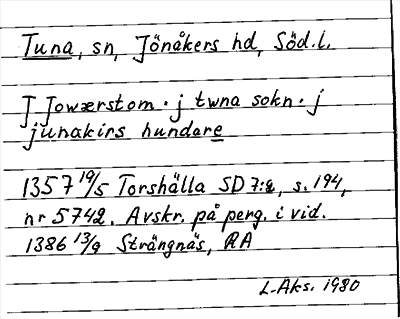 Tuna, sn, Jönåkers hd, Söd.l.
J Jowærstom · j twna sokn · j
junakirs hundare
1357 19/5 Torshälla SD 7:2, s. 194,
nr 5742. Avskr. på perg. i vid.
1386 13/9 Strängnäs, RA
L-Aks. 1980